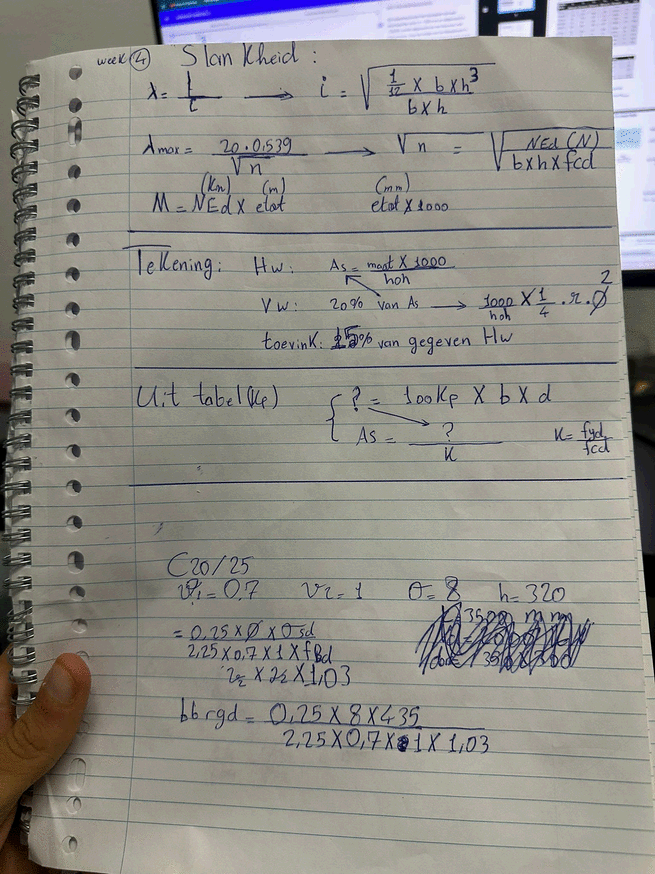 week 4 Slankheid :
λ = l / i → i = √( 1/12 x b x h³ / b x h )
λmax = 20 · 0.539 / √n → √n = √( NEd (N) / b x h x fcd )
(Kn) (m) (mm)
M = NEd x etot etot x 1000
Tekening: Hw: As = maat x 1000 / hoh
Vw: 20% van As → 1000 / hoh x 1/4 . π . Ø²
toevlnk: 15% van gegeven Hw
Uit tabel (Kp) { ? = 100Kp x b x d
As = ? / K K = fyd / fcd
C20/25
= 0,7 = 1 σ = 8 h = 320
= 0,25 x Ø x σsd
2,25 x 0,7 x 1 x fBd
x 1,03
bbrgd = 0,25 x 8 x 435
2,25 x 0,7 x 1 x 1,03